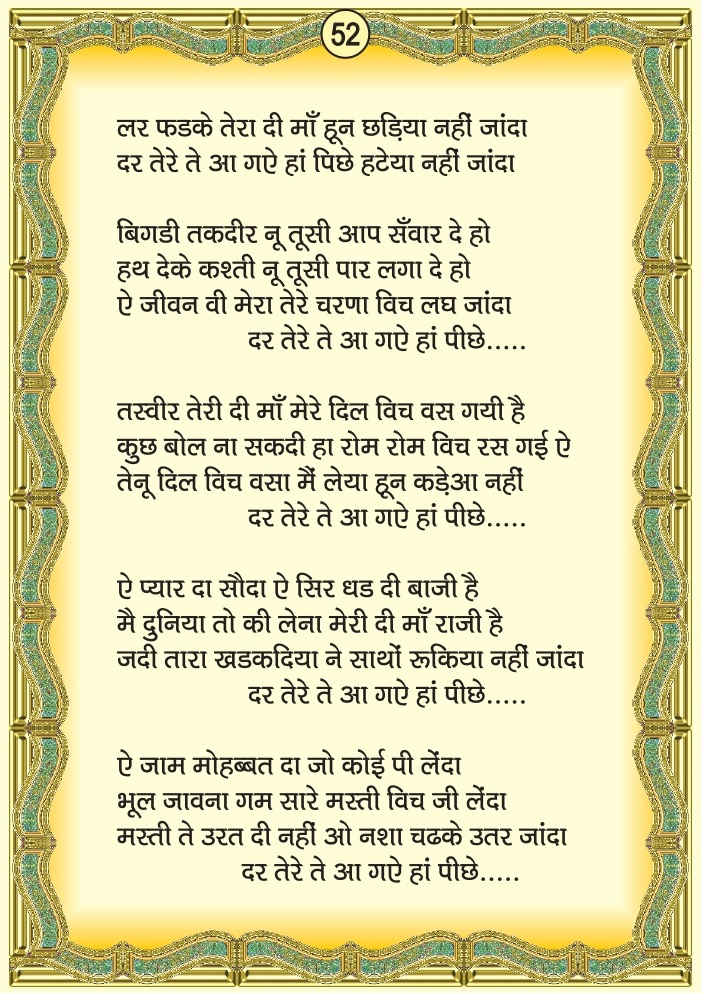 52
लर फडके तेरा दी माँ हून छड़िया नहीं जांदा
दर तेरे ते आ गऐ हां पिछे हटेया नहीं जांदा
बिगडी तकदीर नू तूसी आप सँवार दे हो
हथ देके कश्ती नू तूसी पार लगा दे हो
ऐ जीवन वी मेरा तेरे चरणा विच लघ जांदा
दर तेरे ते आ गऐ हां पीछे.....
तस्वीर तेरी दी माँ मेरे दिल विच वस गयी है
कुछ बोल ना सकदी हा रोम रोम विच रस गई ऐ
तेनू दिल विच वसा मैं लेया हून कड़ेआ नहीं
दर तेरे ते आ गऐ हां पीछे.....
ऐ प्यार दा सौदा ऐ सिर धड दी बाजी है
मै दुनिया तो की लेना मेरी दी माँ राजी है
जदी तारा खडकदिया ने साथों रूकिया नहीं जांदा
दर तेरे ते आ गऐ हां पीछे.....
ऐ जाम मोहब्बत दा जो कोई पी लेंदा
भूल जावना गम सारे मस्ती विच जी लेंदा
मस्ती ते उरत दी नहीं ओ नशा चढके उतर जांदा
दर तेरे ते आ गऐ हां पीछे.....